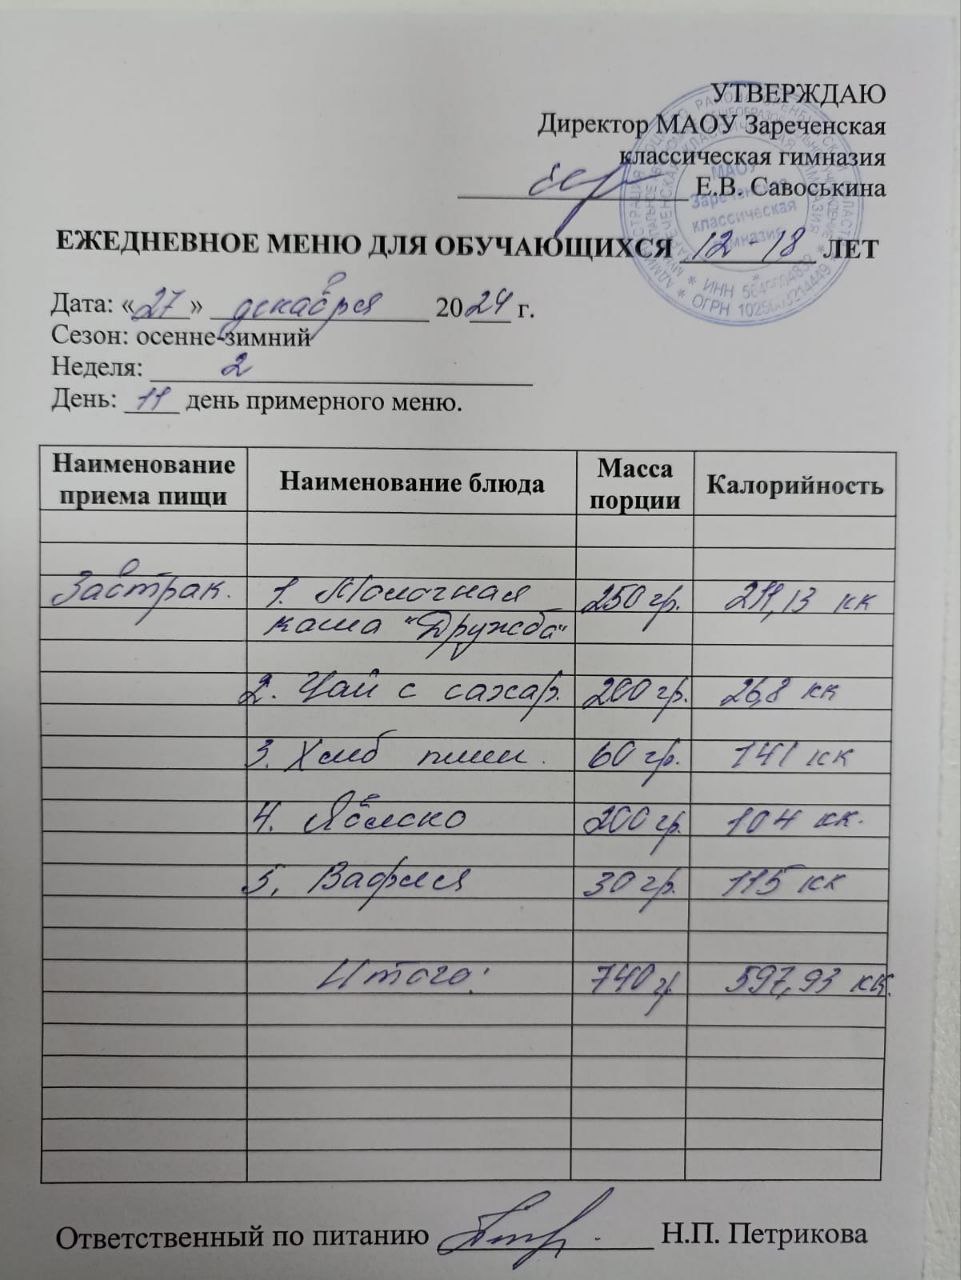 УТВЕРЖДАЮ
Директор МАОУ Зареченская
классическая гимназия
Е.В. Савоськина
МАОУ
Зареченская
классическая
гимназия
ЕЖЕДНЕВНОЕ МЕНЮ ДЛЯ ОБУЧАЮЩИХСЯ 12 - 18 ЛЕТ
Дата: «27» декабря 2024 г.
Сезон: осенне-зимний
Неделя: 2
День: 11 день примерного меню.
Наименование приема пищи Наименование блюда Масса порции Калорийность
Завтрак. 1. Молочная 250 гр. 211,13 кк
каша "Дружба"
2. Чай с сахар. 200 гр. 26,8 кк
3. Хлеб пшен. 60 гр. 141 кк
4. Яблоко 200 гр. 104 кк.
5. Вафля 30 гр. 115 кк
Итого: 740 г. 597,93 кк.
Ответственный по питанию Н.П. Петрикова